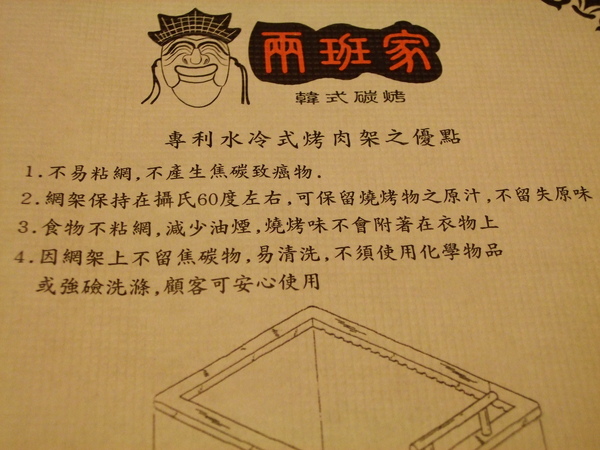 兩班家
韓式碳烤
專利水冷式烤肉架之優點
1.不易粘網,不產生焦碳致癌物.
2.網架保持在攝氏60度左右,可保留燒烤物之原汁,不留失原味
3.食物不粘網,減少油煙,燒烤味不會附著在衣物上
4.因網架上不留焦碳物,易清洗,不須使用化學物品
或強鹼洗滌,顧客可安心使用